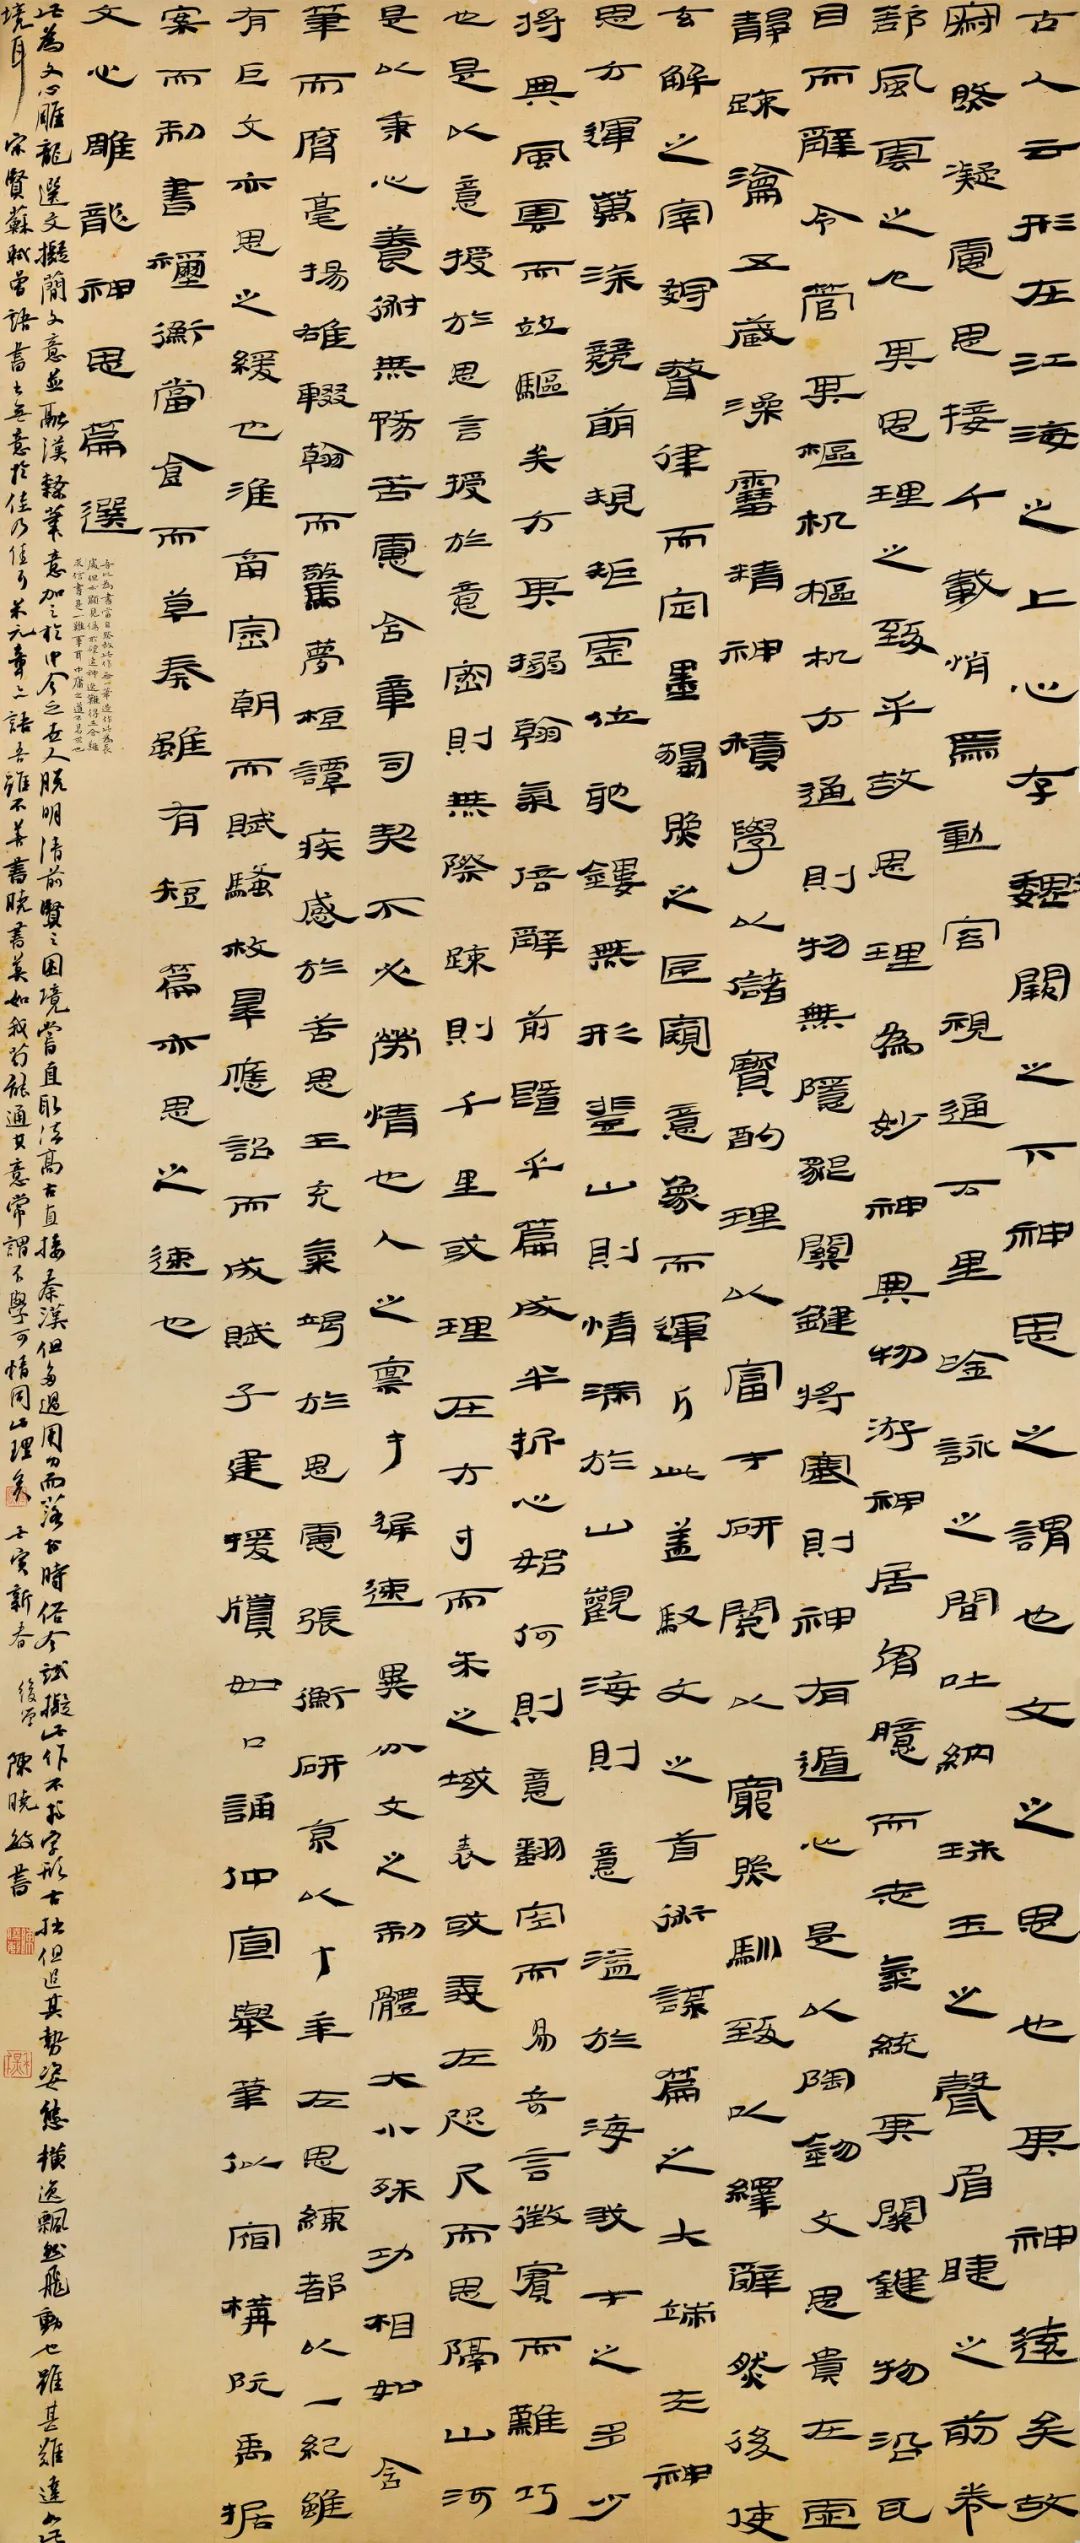 古人云形在江海之上心存魏闕之下神思之謂也文之思也其神遠矣故
寂然凝慮思接千載悄焉動容視通万里唫詠之間吐納珠玉之聲眉睫之前卷
舒風雲之色其思理之致乎故思理為妙神與物游神居胷臆而志氣統其關鍵物沿耳
目而辭令管其樞机樞机方通則物無隱貌關鍵將塞則神有遁心是以陶鈞文思貴在虛
靜疎瀹五藏澡雪精神積學以儲寶酌理以富才研閱以窮照馴致以繹辭然後使
玄解之宰尋聲律而定墨獨照之匠闚意象而運斤此蓋馭文之首術謀篇之大端夫神
思方運萬塗競萌規矩虛位刻鏤無形登山則情滿於山觀海則意溢於海我才之多少
將與風雲而竝驅矣方其搦翰氣倍辭前暨乎篇成半折心始何則意翻空而易奇言徵實而難巧
也是以意授於思言授於意密則無際疎則千里或理在方寸而求之域表或義在咫尺而思隔山河
是以秉心養術無務苦慮含章司契不必勞情也人之稟才遲速異分文之制體大小殊功相如含
筆而腐毫揚雄輟翰而驚夢桓譚疾感於苦思王充氣竭於思慮張衡研京以十年左思練都以一紀雖
有巨文亦思之緩也淮南崇朝而賦騷枚皋應詔而成賦子建援牘如口誦仲宣舉筆似宿構阮禹据
案而制書禰衡當食而草奏雖有短篇亦思之速也
文心雕龍神思篇選
此為文心雕龍選文擬簡文意並融漢隸筆意加之於中今之世人脫明清前賢之困境嘗直取法高古直接秦漢但多過用力而落於時俗今試擬此作不求字形古拙但追其勢姿態橫逸飄然飛動也雖甚難達此
境耳宋賢蘇軾曾語書者無意於佳乃佳米元章之語吾雖不善書曉書莫如我苟能通其意常謂不學可情同此理矣壬寅新春後學陳曉敏書